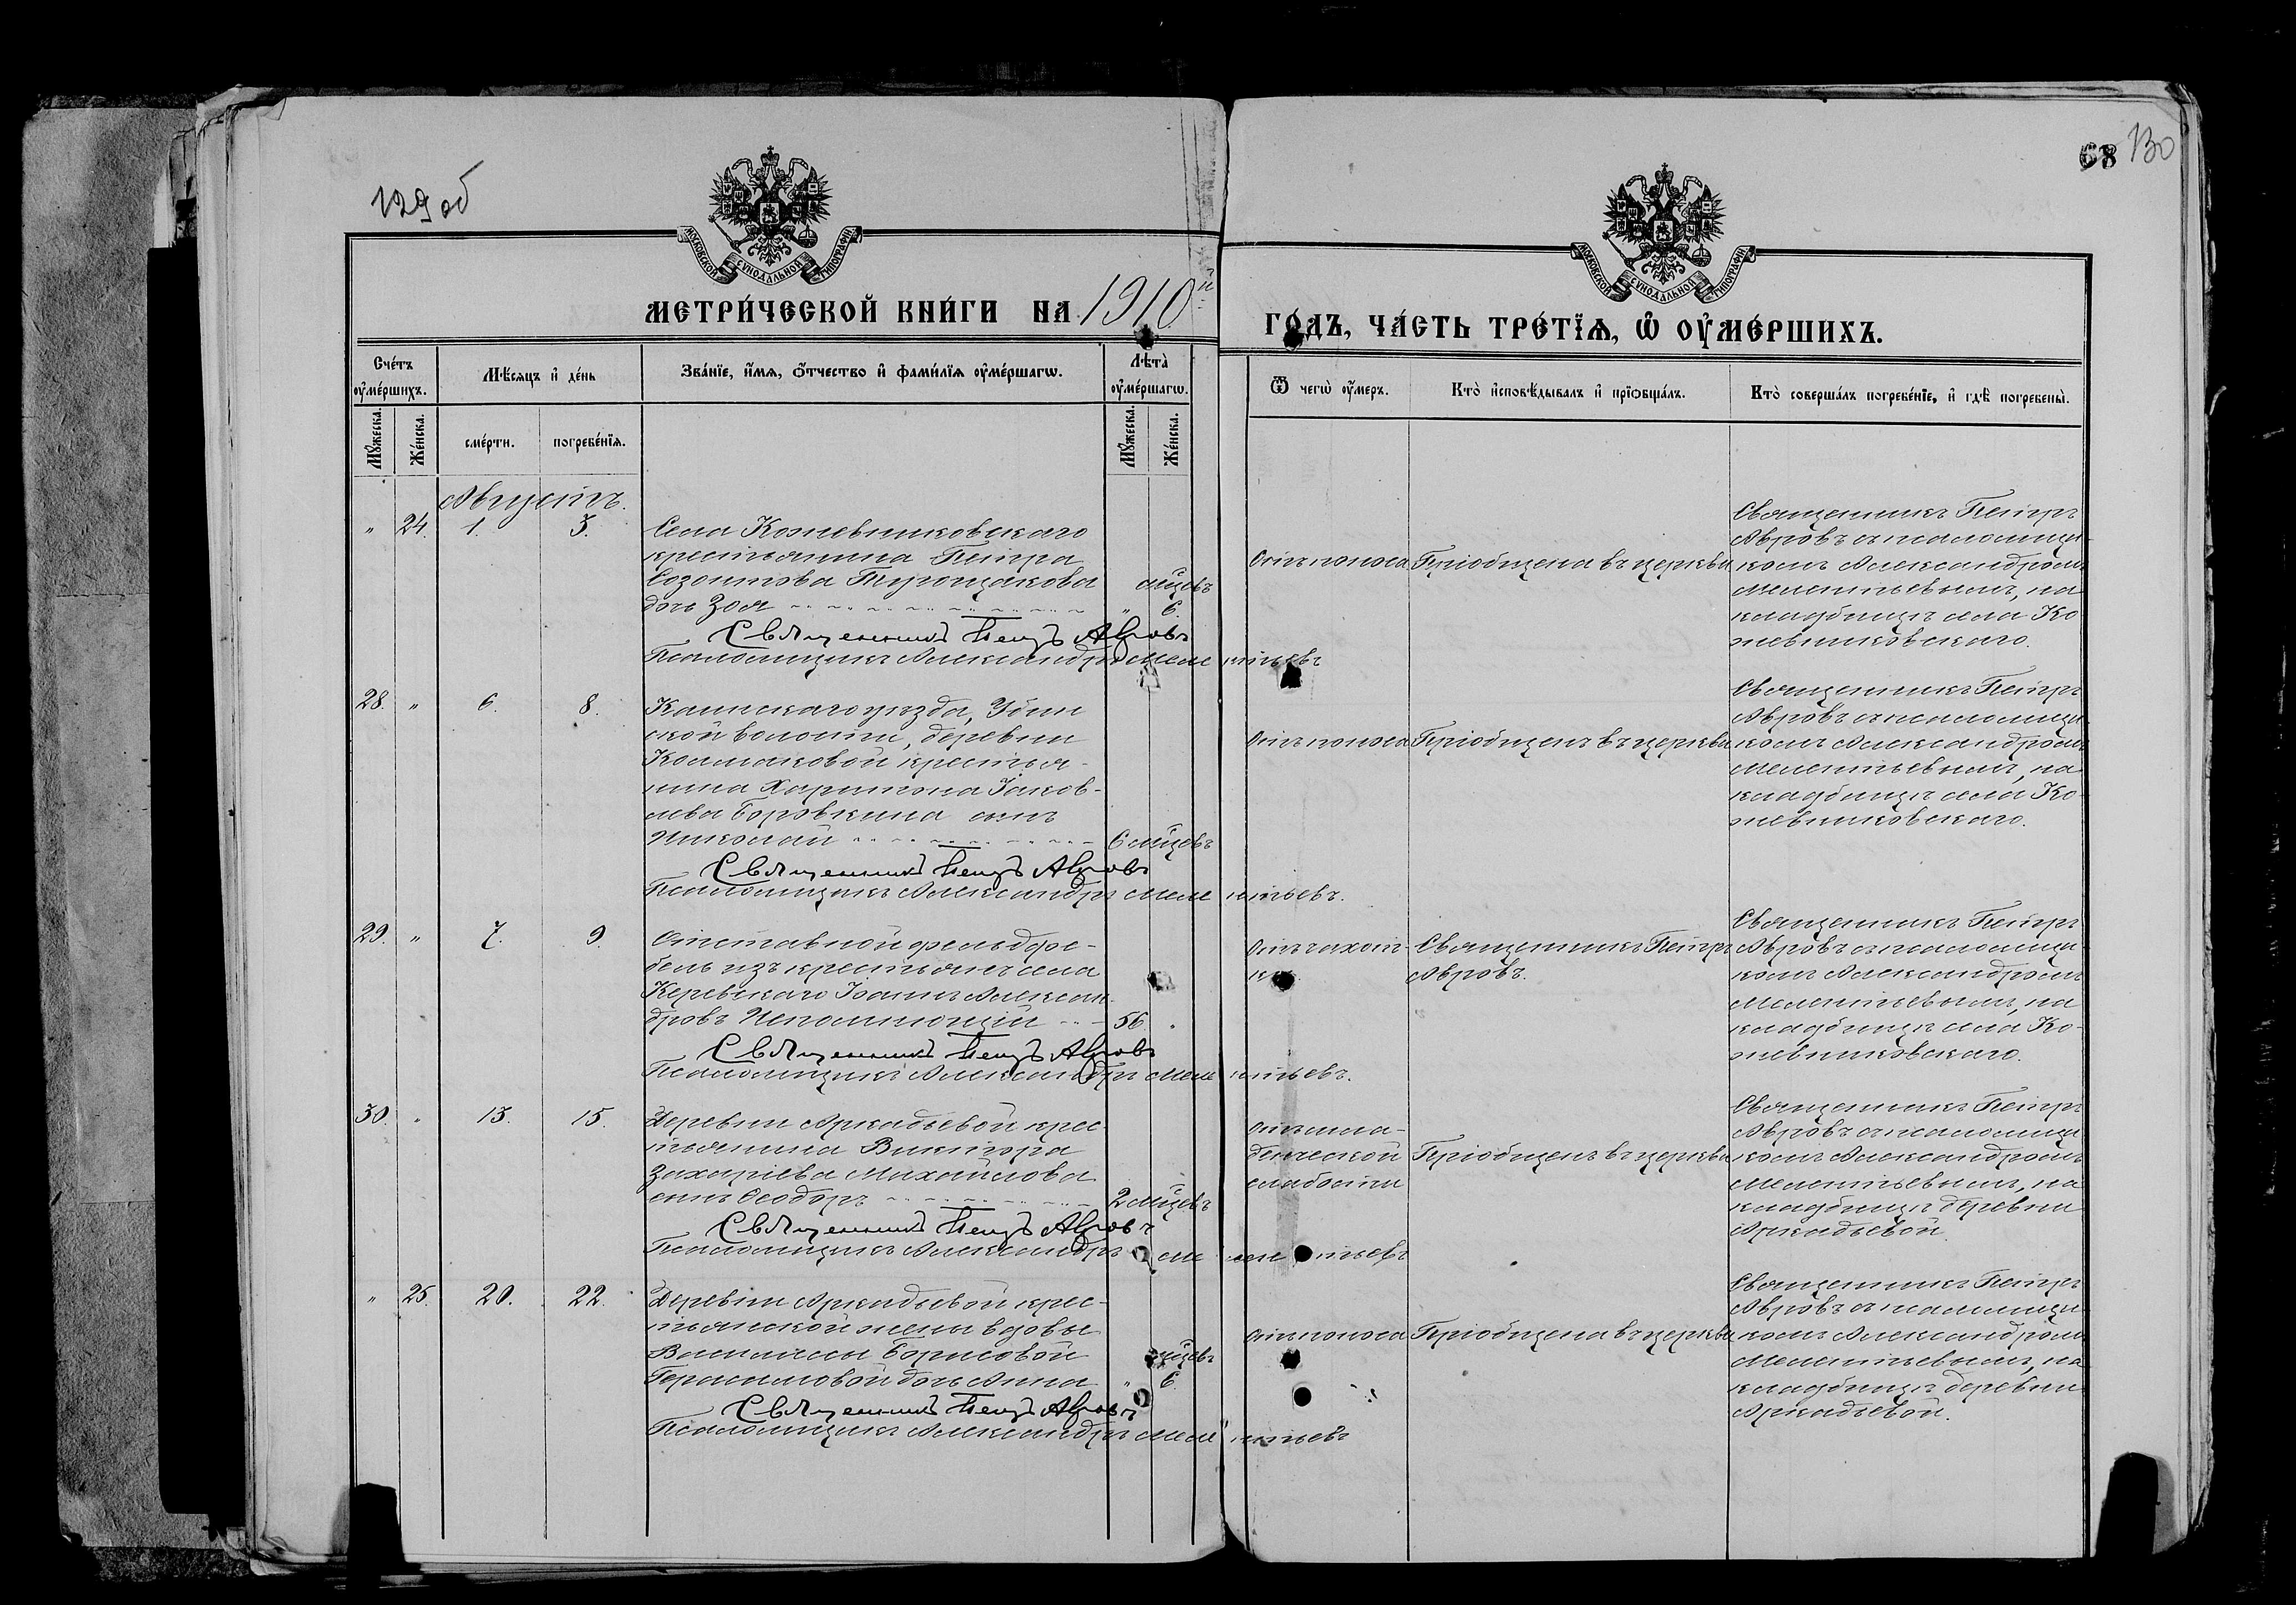 129 об
68 130
МОСКОВСКОЙ СУНОДАЛЬНОЙ ТИПОГРАФІИ
МОСКОВСКОЙ СУНОДАЛЬНОЙ ТИПОГРАФІИ
МЕТРИ́ЧЕСКОЙ КНИ́ГИ НА 1910й
ГО́ДЪ, ЧА́СТЬ ТРЕ́ТЇѦ, Ѡ҆ ОУ҆МЕ́РШИХЪ.
Сче́тъ оу҆ме́ршихъ.
Мѣ́сяцъ и҆ де́нь
Зва́нїе, и҆́мѧ, ѻ҆́тчество и҆ фами́лїѧ оу҆ме́ршагѡ.
Лѣ̀та оу҆ме́ршагѡ.
Ѿ чегѡ̀ оу҆́меръ.
Кто̀ и҆сповѣ́дывалъ и҆ прїѡбща́лъ.
Кто̀ соверша́лъ погребе́нїе, и҆ гдѣ̀ погребены̀.
Мꙋ́жеска.
Же́нска.
сме́рти.
погребе́нїѧ.
Мꙋ́жеска.
Же́нска.
Августъ.
" 24. 1. 3.
Села Кожевниковскаго
крестьянина Петра
Созонтова Турощакова
дочь Зоя
" мцевъ 6
Священникъ Петръ Авровъ
Псаломщикъ Александръ Мелентьевъ
Отъ поноса
Пріобщена въ церкви
Священникъ Петръ
Авровъ съ псаломщи-
комъ Александромъ
Мелентьевымъ, на
кладбищѣ села Ко
жевниковскаго.
28. " 6. 8.
Каинскаго уѣзда, Убин
ской волости, деревни
Колмаковой крестья-
нина Харитона Іаков-
лева Боровкина сынъ
Николай
6 мцевъ
Священникъ Петръ Авровъ
Псаломщикъ Александръ Мелентьевъ.
Отъ поноса
Пріобщенъ въ церкви
Священникъ Петръ
Авровъ съ псаломщи-
комъ Александромъ
Мелентьевымъ, на
кладбищѣ села Ко-
жевниковскаго.
29. " 7. 9.
Отставной фельдфе-
бель изъ крестьянъ села
Керевскаго Іоаннъ Алексан-
дровъ Непомнющій
56 "
Священникъ Петръ Авровъ
Псаломщикъ Александръ Мелентьевъ.
Отъ чахот-
ки
Священникъ Петръ
Авровъ.
Священникъ Петръ
Авровъ съ псаломщи-
комъ Александромъ
Мелентьевымъ, на
кладбищѣ села Ко-
жевниковскаго.
30. " 13. 15.
Деревни Аркадьевой крес-
тьянина Виктора
Захаріева Михайлова
сынъ Ѳеодоръ
2 мцевъ
Священникъ Петръ Авровъ
Псаломщикъ Александръ Мелентьевъ
Отъ мла-
денческой
слабости
Пріобщенъ въ церкви
Священникъ Петръ
Авровъ съ псаломщи
комъ Александромъ
Мелентьевымъ, на
кладбищѣ деревни
Аркадьевой.
" 25. 20. 22.
Деревни Аркадьевой крес-
тьянской жены вдовы
Василисы Борисовой
Герасимовой дочь Анна
" мцевъ 6
Священникъ Петръ Авровъ
Псаломщикъ Александръ Мелентьевъ
Отъ поноса
Пріобщена въ церкви
Священникъ Петръ
Авровъ съ псаломщи-
комъ Александромъ
Мелентьевымъ, на
кладбищѣ деревни
Аркадьевой.